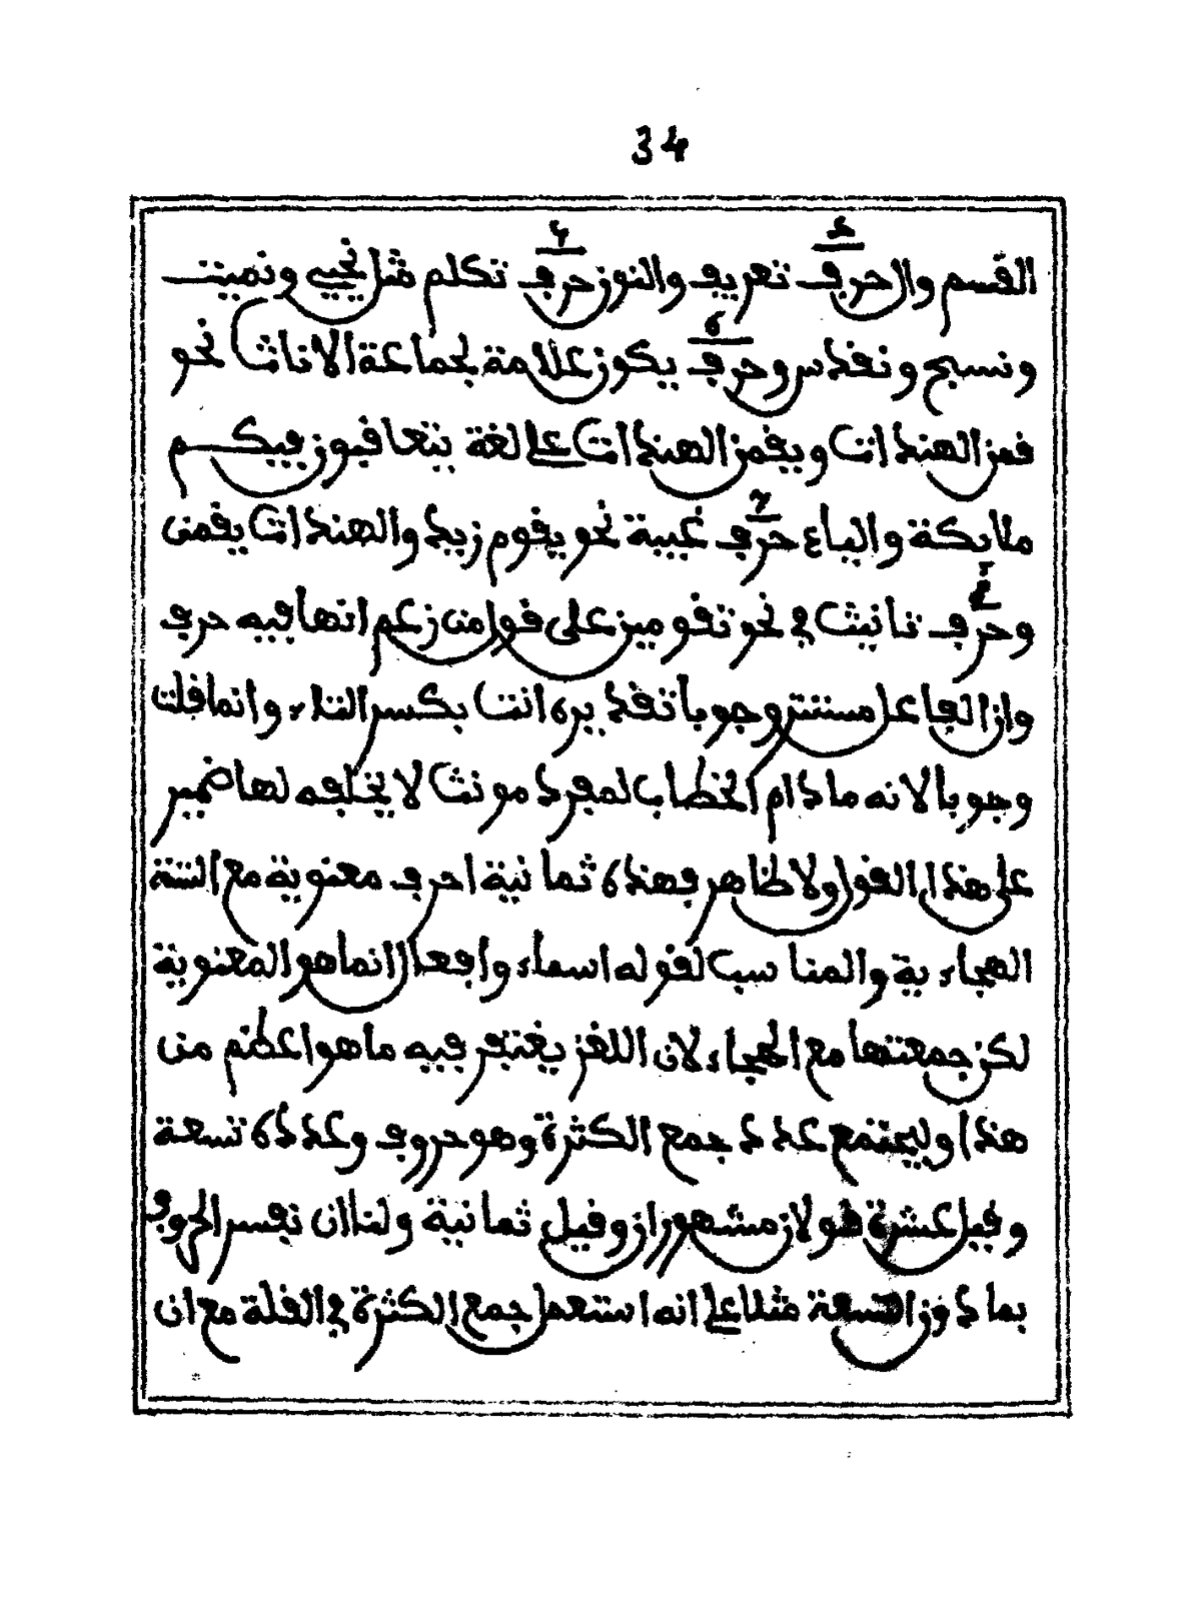 34
القسم وال حرف تعريف والنون حرف تكلم مثل نحيي ونميت
ونسبح ونقدس وحرف يكون علامة لجماعة الاناث نحو
قمن الهندات ويقمن الهندات على لغة يتعاقبون فيكم
ملايكة والياء حرف غيبة نحو يقوم زيد والهندات يقمن
وحرف تانيث في نحو تقومين على قول من زعم انها فيه حرف
وان الفاعل مستتر وجوبا تقديره انت بكسر التاء وانما قلت
وجوبا لانه مادام الخطاب لمفرد مونث لا يخلفه لها ضمير
على هذا القول ولا ظاهر فهذه ثمانية احرف معنوية مع الستة
الهجاءية والمناسب لقوله اسماء وافعال انما هو المعنوية
لكن جمعتها مع الهجاء لان اللغز يغتفر فيه ما هو اعظم من
هذا وليجتمع عدد جمع الكثرة وهو حروف وعدده تسعة
وقيل عشرة قولان مشهوران وقيل ثمانية ولنا ان نفسر الحروف
بما دون التسعة مثلا على انه استعمل جمع الكثرة في القلة مع ان